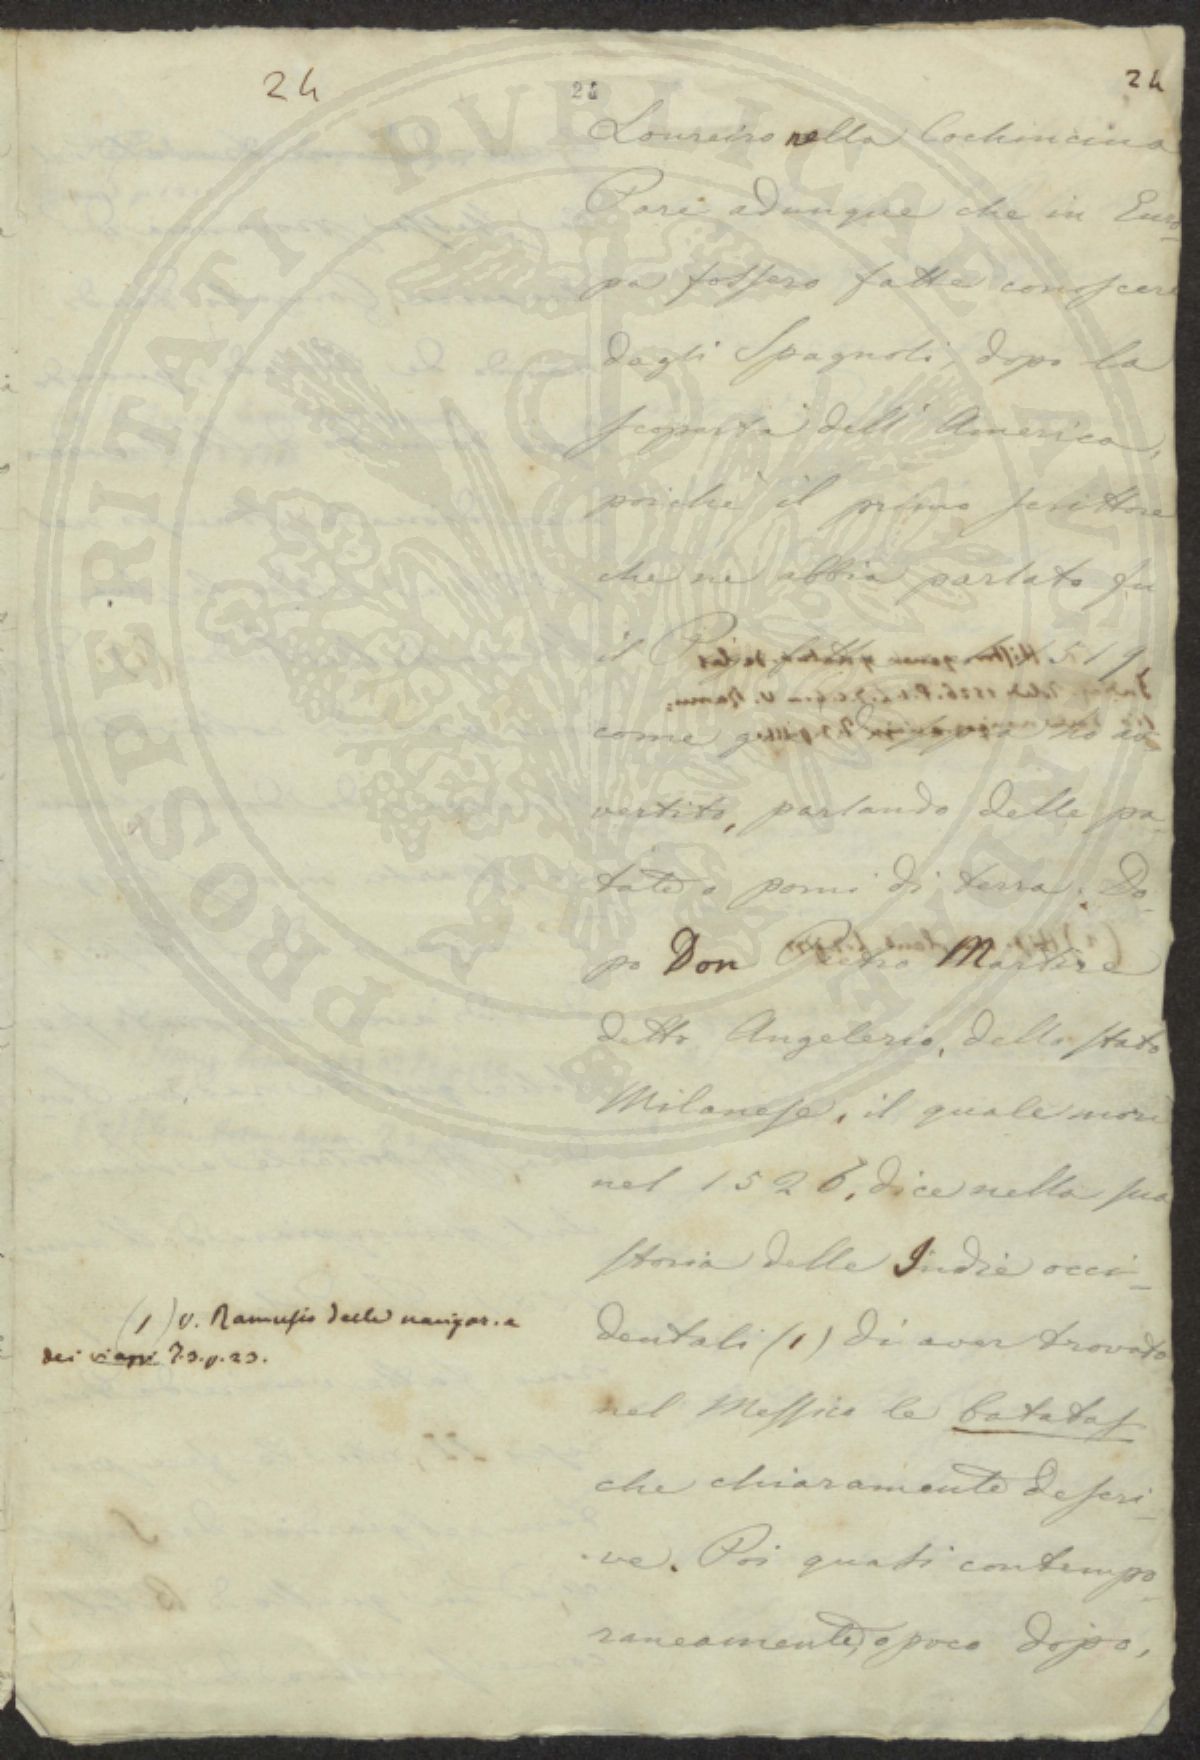 24
24
24
Loureiro nella Cochincina
Pare adunque che in Euro-
pa fossero fatte conoscere
dagli Spagnoli, dopo la
scoperta dell' America,
poichè il primo scrittore
che ne abbia parlato fu
il 1519,
come ho av
vertito, parlando delle pa-
tate o pomi di terra. Do-
po Don Pietro Martire
detto Angelerio, dello stato
Milanese, il quale morì
nel 1526, dice nella sua
storia delle Indie occi-
dentali (1) di aver trovato
nel Messico le batatas
che chiaramente descri-
ve. Poi quasi contempo-
raneamente, o poco dopo,
(1) v. Ramusio delle navigaz. e
dei viaggi T.3.p.23.
PROSPERITATI PVBLICAE AVGENDAE